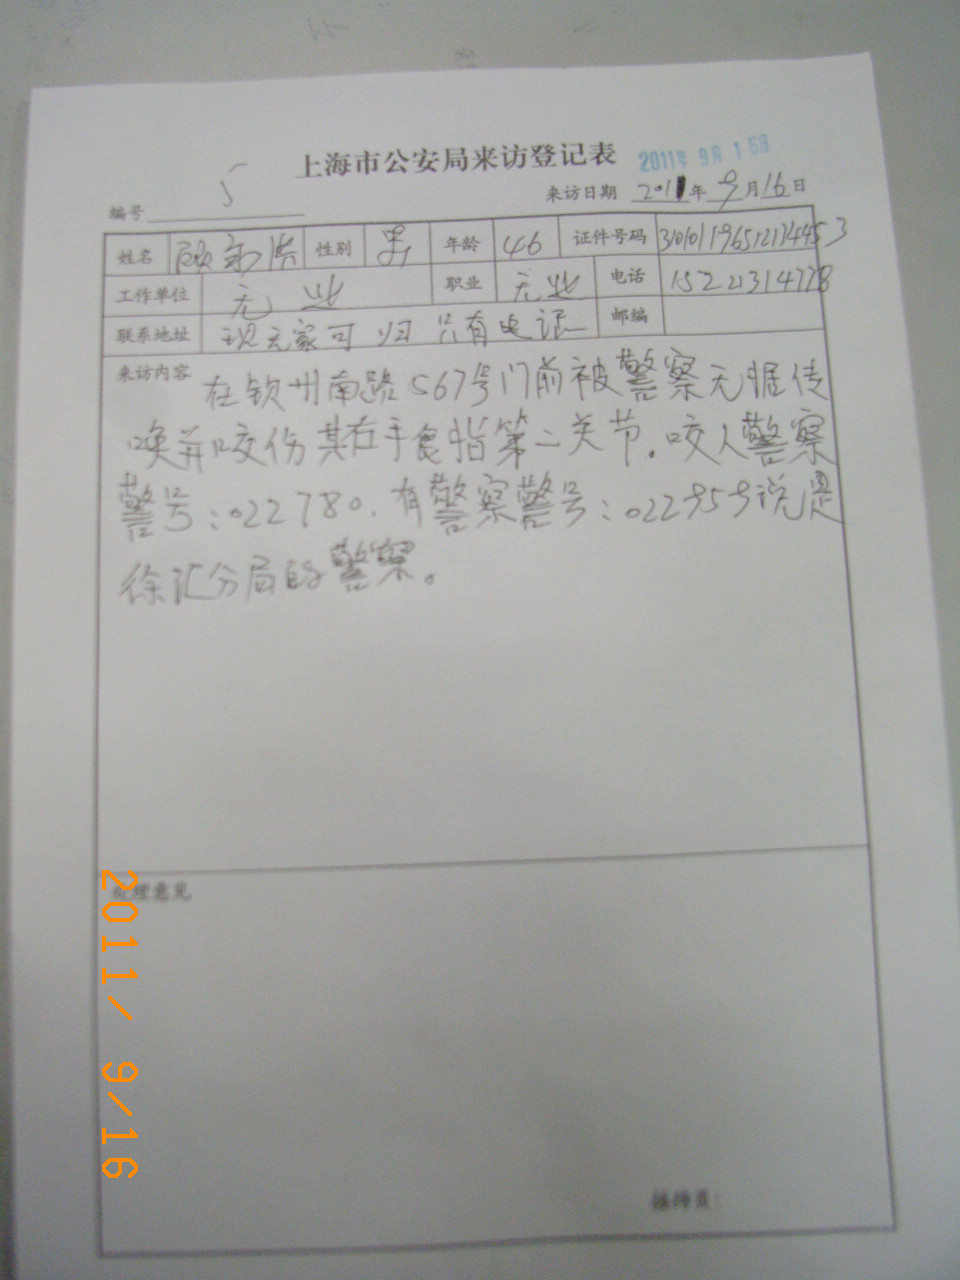 上海市公安局来访登记表
2011年 9月 16日
编号 5
来访日期 2011年 9月16日
姓名 顾 性别 男 年龄 46 证件号码
工作单位 无业 职业 无业 电话
联系地址 现无家可归 只有电话 邮编
来访内容 在钦州南路567号门前被警察无据传
唤并咬伤其右手食指第二关节。咬人警察
警号:022780.有警察警号:022959说是
徐汇分局的警察。
处理意见
接待员:
2011/ 9/16